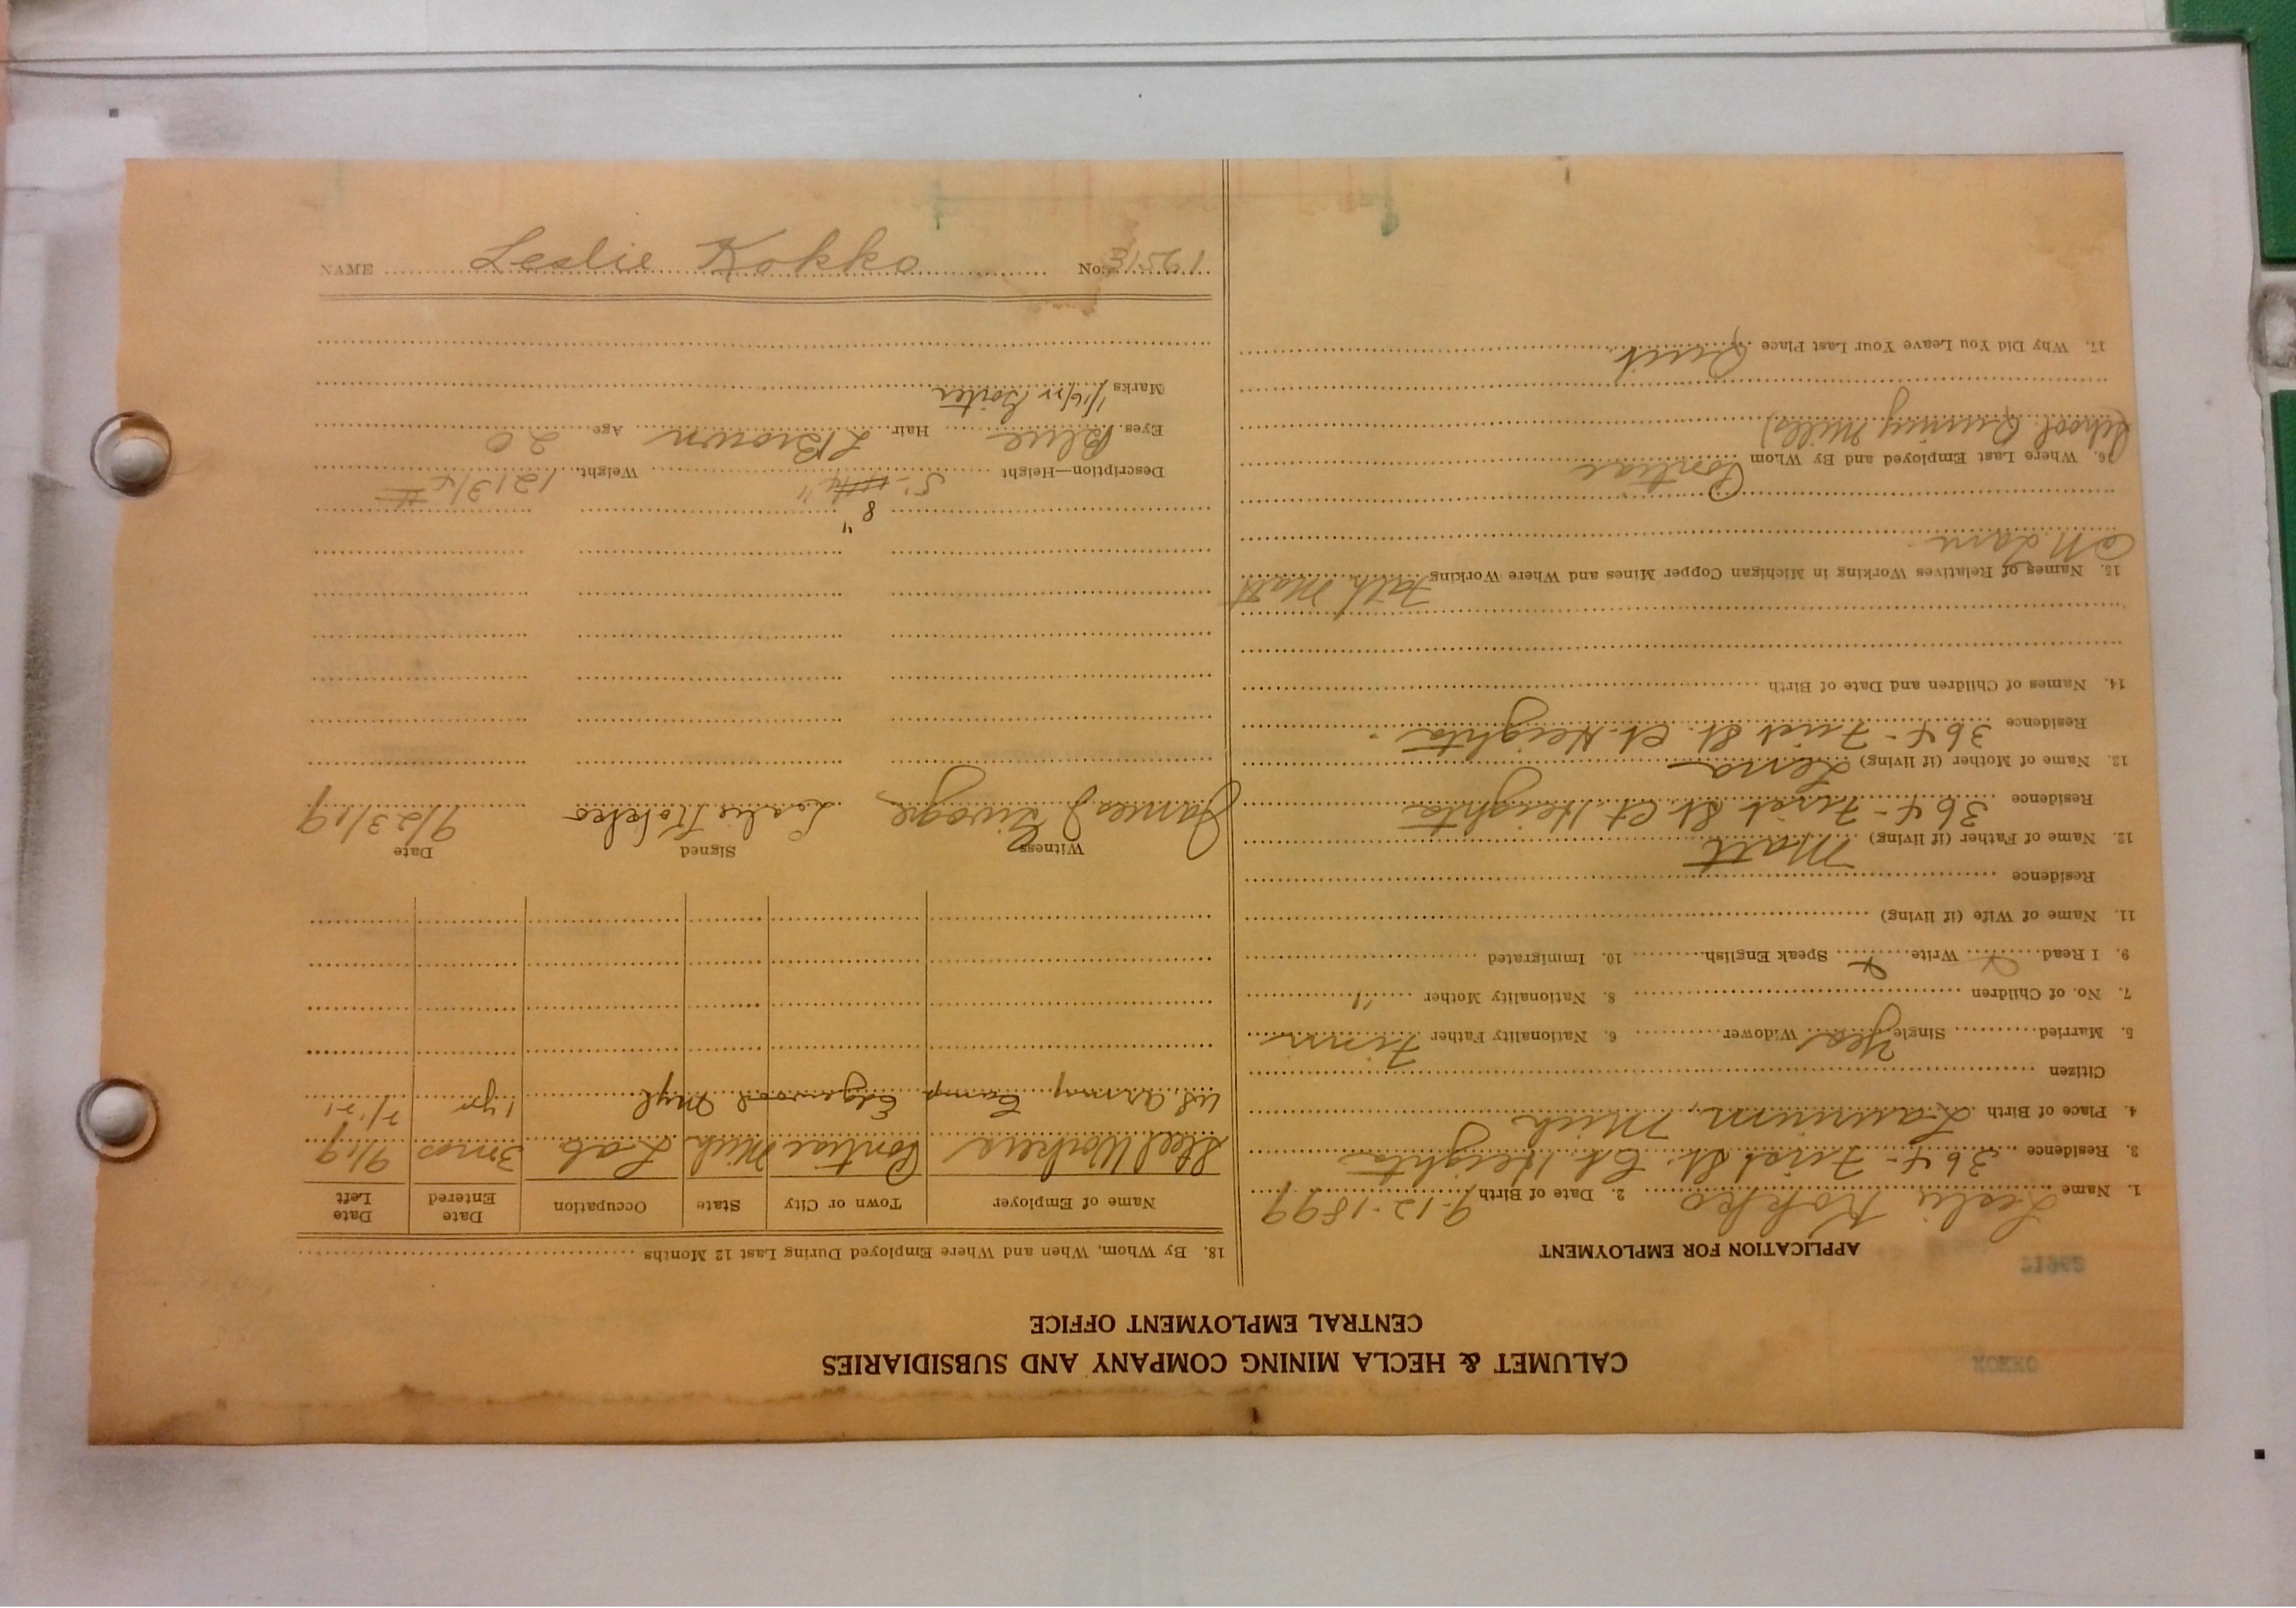 CALUMET & HECLA MINING COMPANY AND SUBSIDIARIES
CENTRAL EMPLOYMENT OFFICE
APPLICATION FOR EMPLOYMENT
1. Name Leslie Kokko 2. Date of Birth 9-12-1899
3. Residence 364-First St. Ct. Heights
4. Place of Birth Laurium, Mich
Citizen
5. Married Single Yes Widower 6. Nationality Father Finn
7. No. of Children 8. Nationality Mother "
9. I Read Write Speak English 10. Immigrated
11. Name of Wife (if living)
Residence
12. Name of Father (if living) Matt
Residence 364-First St. Ct. Heights
13. Name of Mother (if living) Lena
Residence 364-First St. Ct. Heights
14. Names of Children and Date of Birth
15. Names of Relatives Working in Michigan Copper Mines and Where Working Fath Matt
16. Where Last Employed and By Whom Pontiac
17. Why Did You Leave Your Last Place Quit
18. By Whom, When and Where Employed During Last 12 Months
Name of Employer Town or City State Occupation Date Entered Date Left
Steel Workers Pontiac Mich Lab 3 mos 9/19
U.S. Army Camp Edgewood Myl 1 yr
Witness Signed Date
James J Leslie Kokko 9/23/19
8"
Description—Height 5'- Weight 121 3/4 #
Eyes Blue Hair L Brown Age 20
Marks Goiter
NAME Leslie Kokko No. 31561